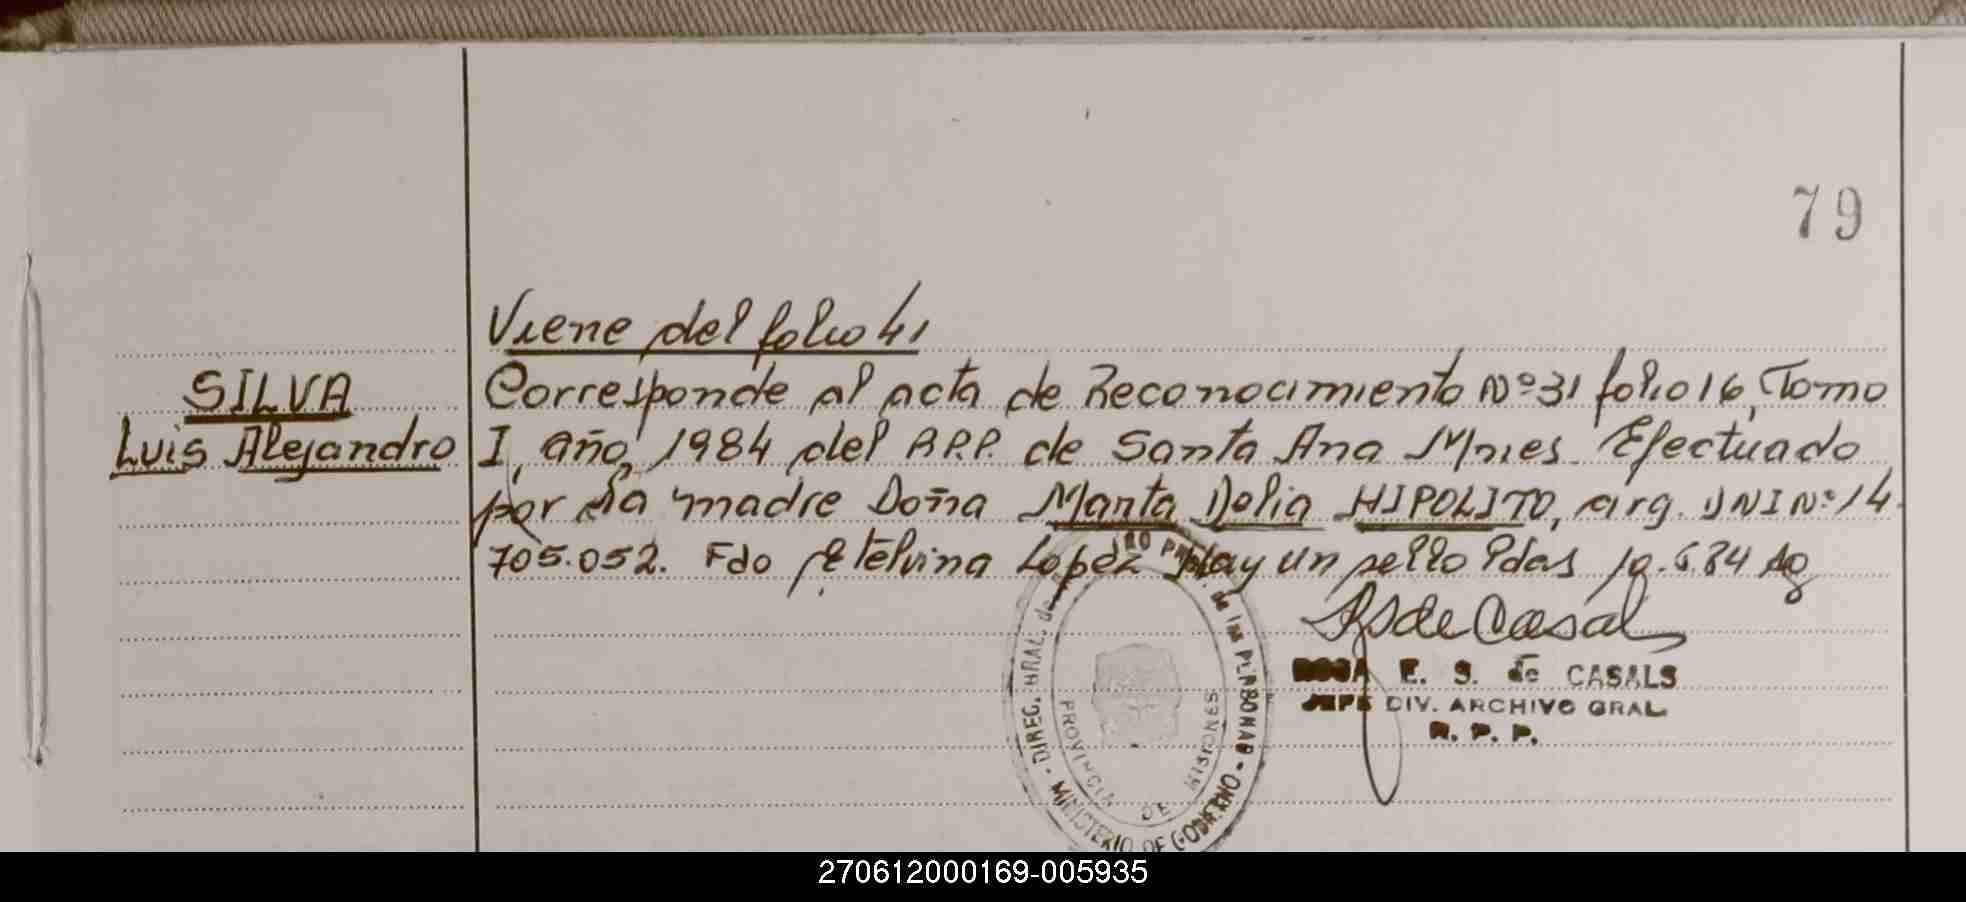 79
Viene del folio 41
SILVA
Luis Alejandro
Corresponde al acta de Reconocimiento Nº 31 folio 16, Tomo
I, año, 1984 del R.P.P. de Santa Ana Mnes. Efectuado
por la madre Doña Marta Delia HIPOLITO, arg. DNI Nº 14.
705.052. Fdo Etelvina Lopez Hay un sello Pdas 19.6.84
ROSA E. S. de CASALS
JEFE DIV. ARCHIVO GRAL.
R. P. P.
DIREC. GRAL. de de las PERSONAS
PROVINCIA DE MISIONES
MINISTERIO DE GOBIERNO
270612000169-005935